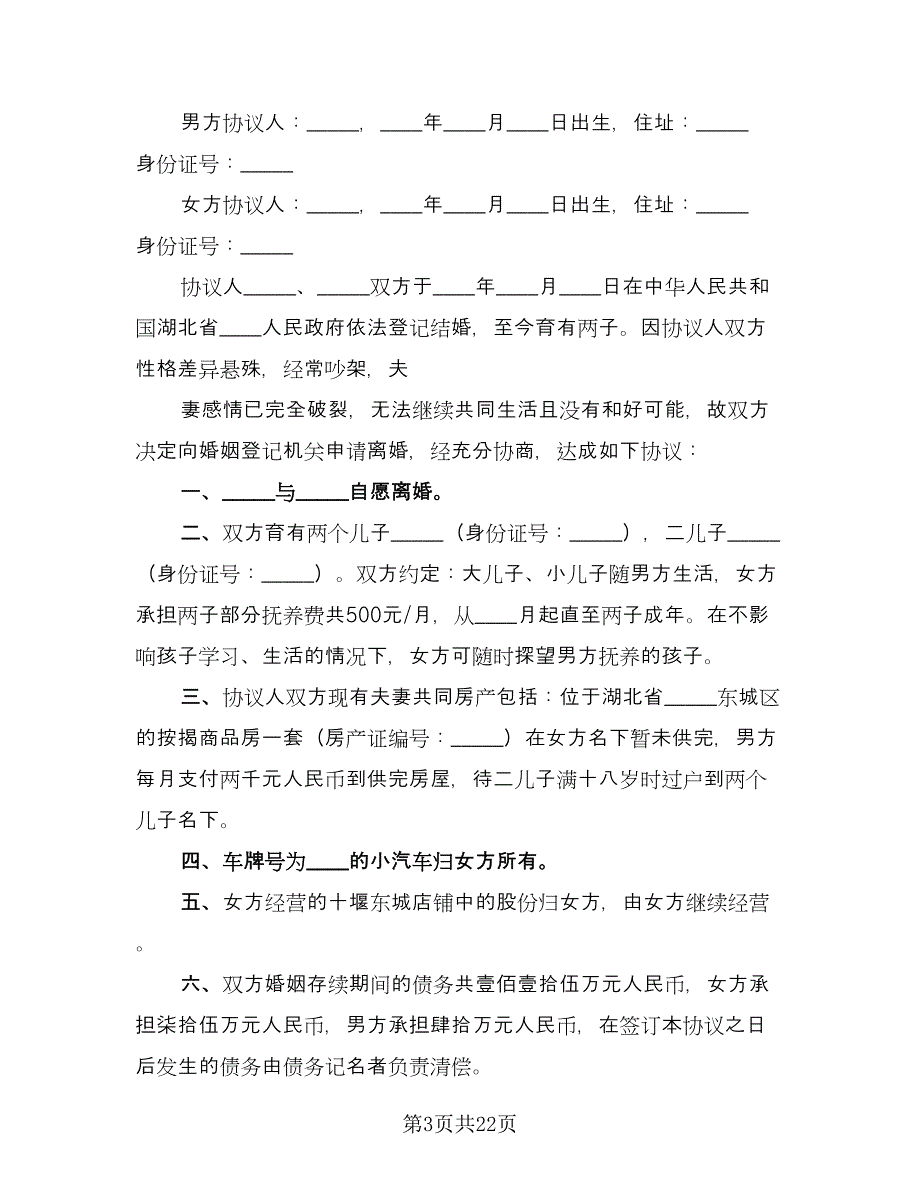 男方协议人：_____，____年____月____日出生，住址：_____
身份证号：_____
女方协议人：_____，____年____月____日出生，住址：_____
身份证号：_____
协议人_____、_____双方于____年____月____日在中华人民共和
国湖北省____人民政府依法登记结婚，至今育有两子。因协议人双方
性格差异悬殊，经常吵架，夫
妻感情已完全破裂，无法继续共同生活且没有和好可能，故双方
决定向婚姻登记机关申请离婚，经充分协商，达成如下协议：
一、_____与_____自愿离婚。
二、双方育有两个儿子_____（身份证号：_____），二儿子_____
（身份证号：_____）。双方约定：大儿子、小儿子随男方生活，女方
承担两子部分抚养费共500元/月，从____月起直至两子成年。在不影
响孩子学习、生活的情况下，女方可随时探望男方抚养的孩子。
三、协议人双方现有夫妻共同房产包括：位于湖北省_____东城区
的按揭商品房一套（房产证编号：_____）在女方名下暂未供完，男方
每月支付两千元人民币到供完房屋，待二儿子满十八岁时过户到两个
儿子名下。
四、车牌号为____的小汽车归女方所有。
五、女方经营的十堰东城店铺中的股份归女方，由女方继续经营
。
六、双方婚姻存续期间的债务共壹佰壹拾伍万元人民币，女方承
担柒拾伍万元人民币，男方承担肆拾万元人民币，在签订本协议之日
后发生的债务由债务记名者负责清偿。
第3页共22页